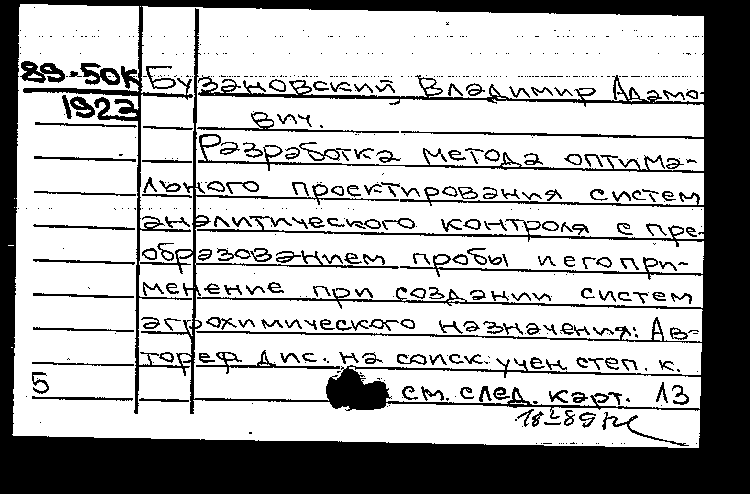 89-50К Бузановский Владимир Адамо-
1923 вич.
Разработка метода оптима-
льного проектирования систем
аналитического контроля с пре-
образованием пробы и его при-
менение при создании систем
агрохимического назначения: Ав-
тореф. дис. на соиск. учен. степ. к.
5 см. след. карт. 13